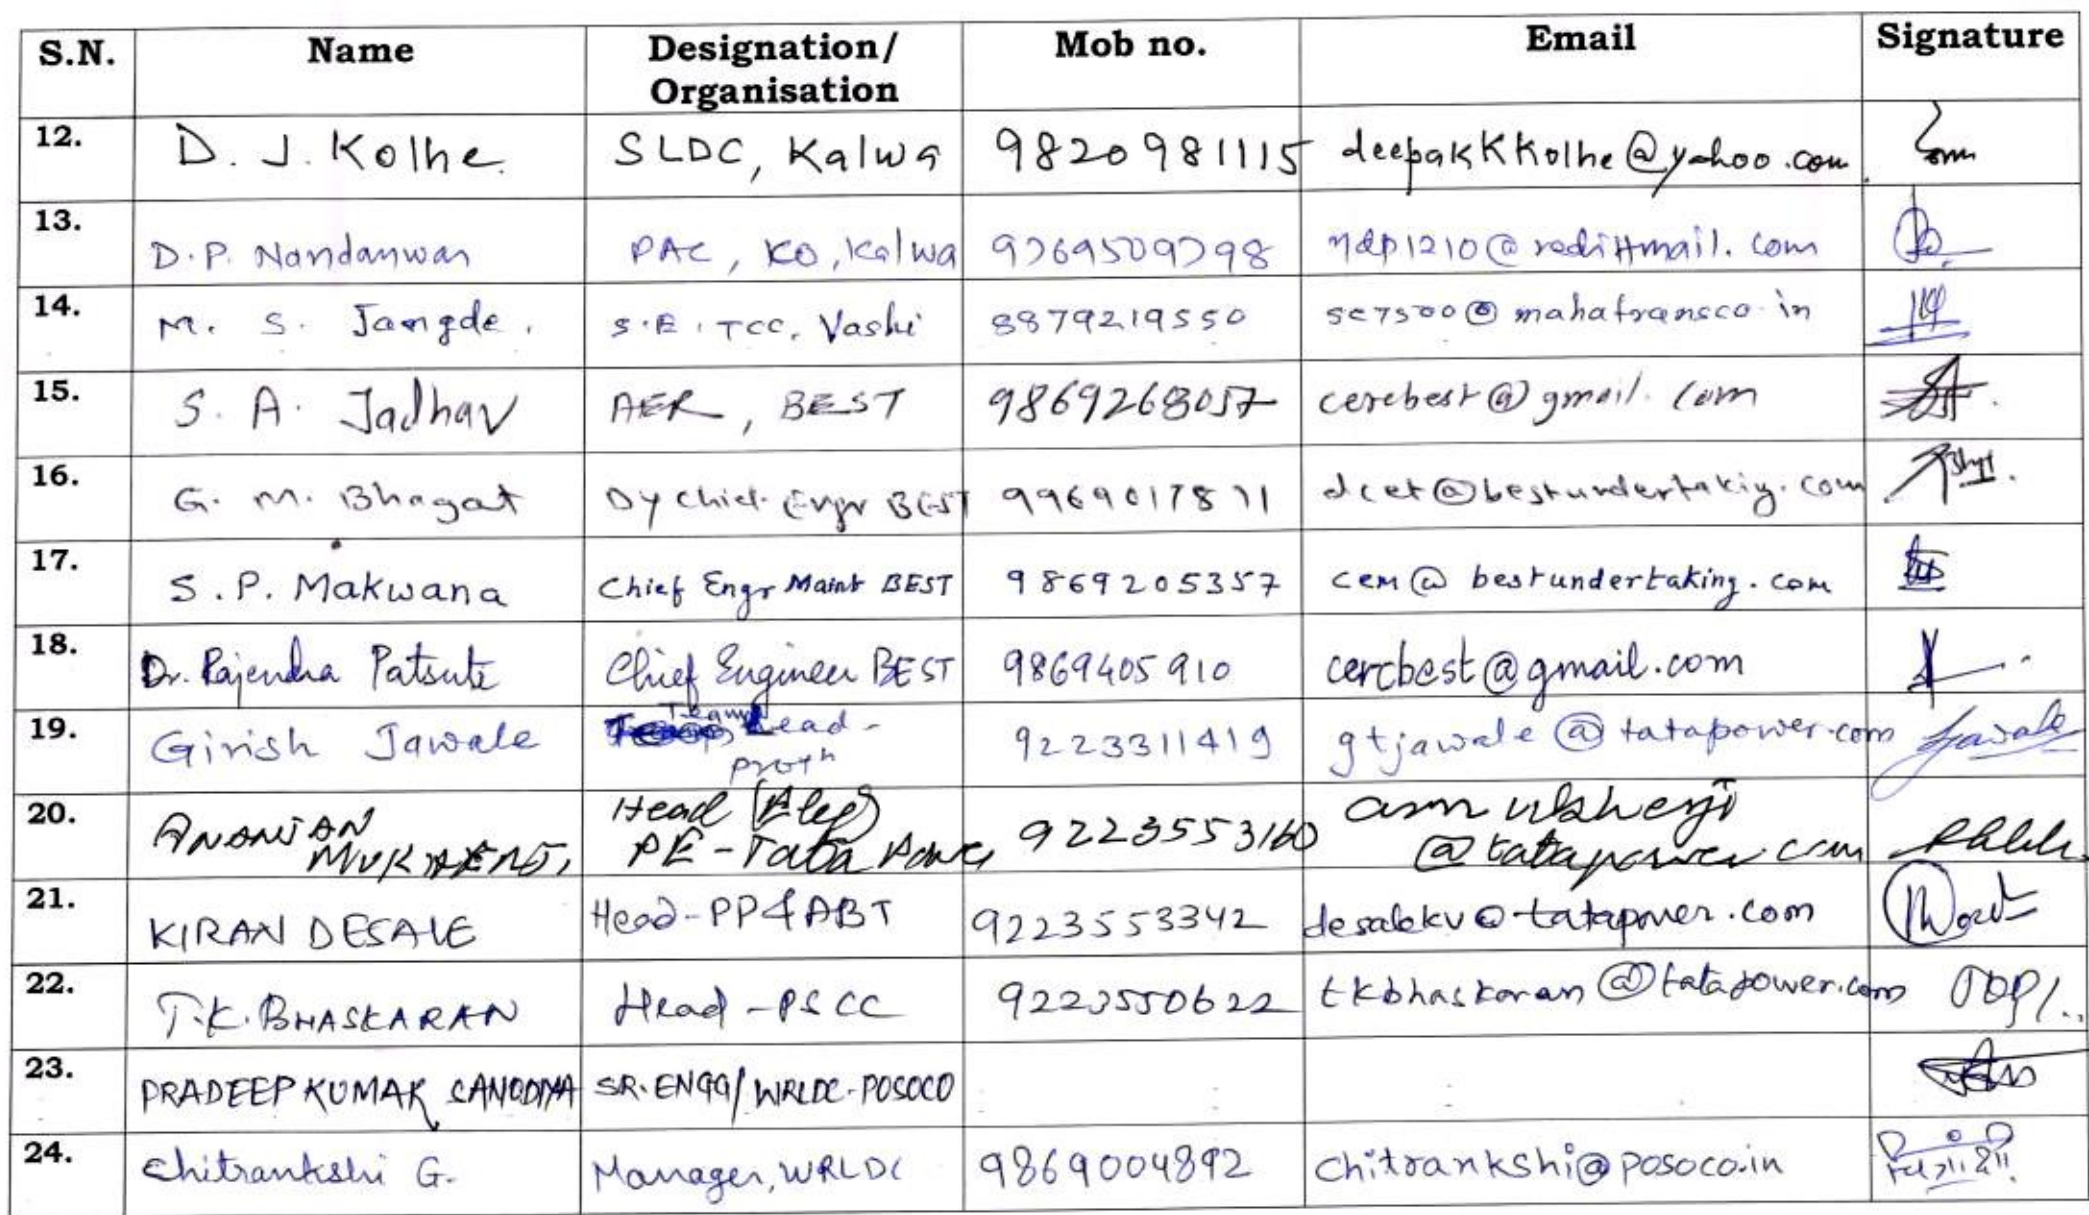 S.N. Name Designation/ Mob no. Email Signature
Organisation
12. D. J. Kolhe. SLDC, Kalwa 9820981115 deepakKKolhe@yahoo.com
13. D.P. Nandanwar PAC, KO, Kalwa 9769509798 ndp1210@rediffmail.com
14. M. S. Jangde. S.E. TCC, Vashi 8879219550 se7500@mahatransco.in
15. S. A. Jadhav AER, BEST 9869268057 cercbest@gmail.com
16. G. M. Bhagat Dy Chief Engr BEST 9969017871 dcet@bestundertakig.com
17. S.P. Makwana Chief Engr Maint BEST 9869205357 cem@bestundertaking.com
18. Dr. Rajendra Patsute Chief Engineer BEST 9869405910 cercbest@gmail.com
19. Girish Jawale Team Lead- 9223311419 gtjawale@tatapower.com Jawale
protn
20. ANANJAN Head (Elec) 9223553160 amukherji
MUKHERJI PE-Tata Power @tatapower.com
21. KIRAN DESALE Head-PP&ABT 9223553342 desalekv@tatapower.com
22. T.K. BHASKARAN Head-PSCC 9223550622 tkbhaskaran@tatapower.com
23. PRADEEP KUMAR SANODIYA SR. ENGG/WRLDC-POSOCO
24. Chitrankshi G. Manager, WRLDC 9869004892 chitrankshi@posoco.in